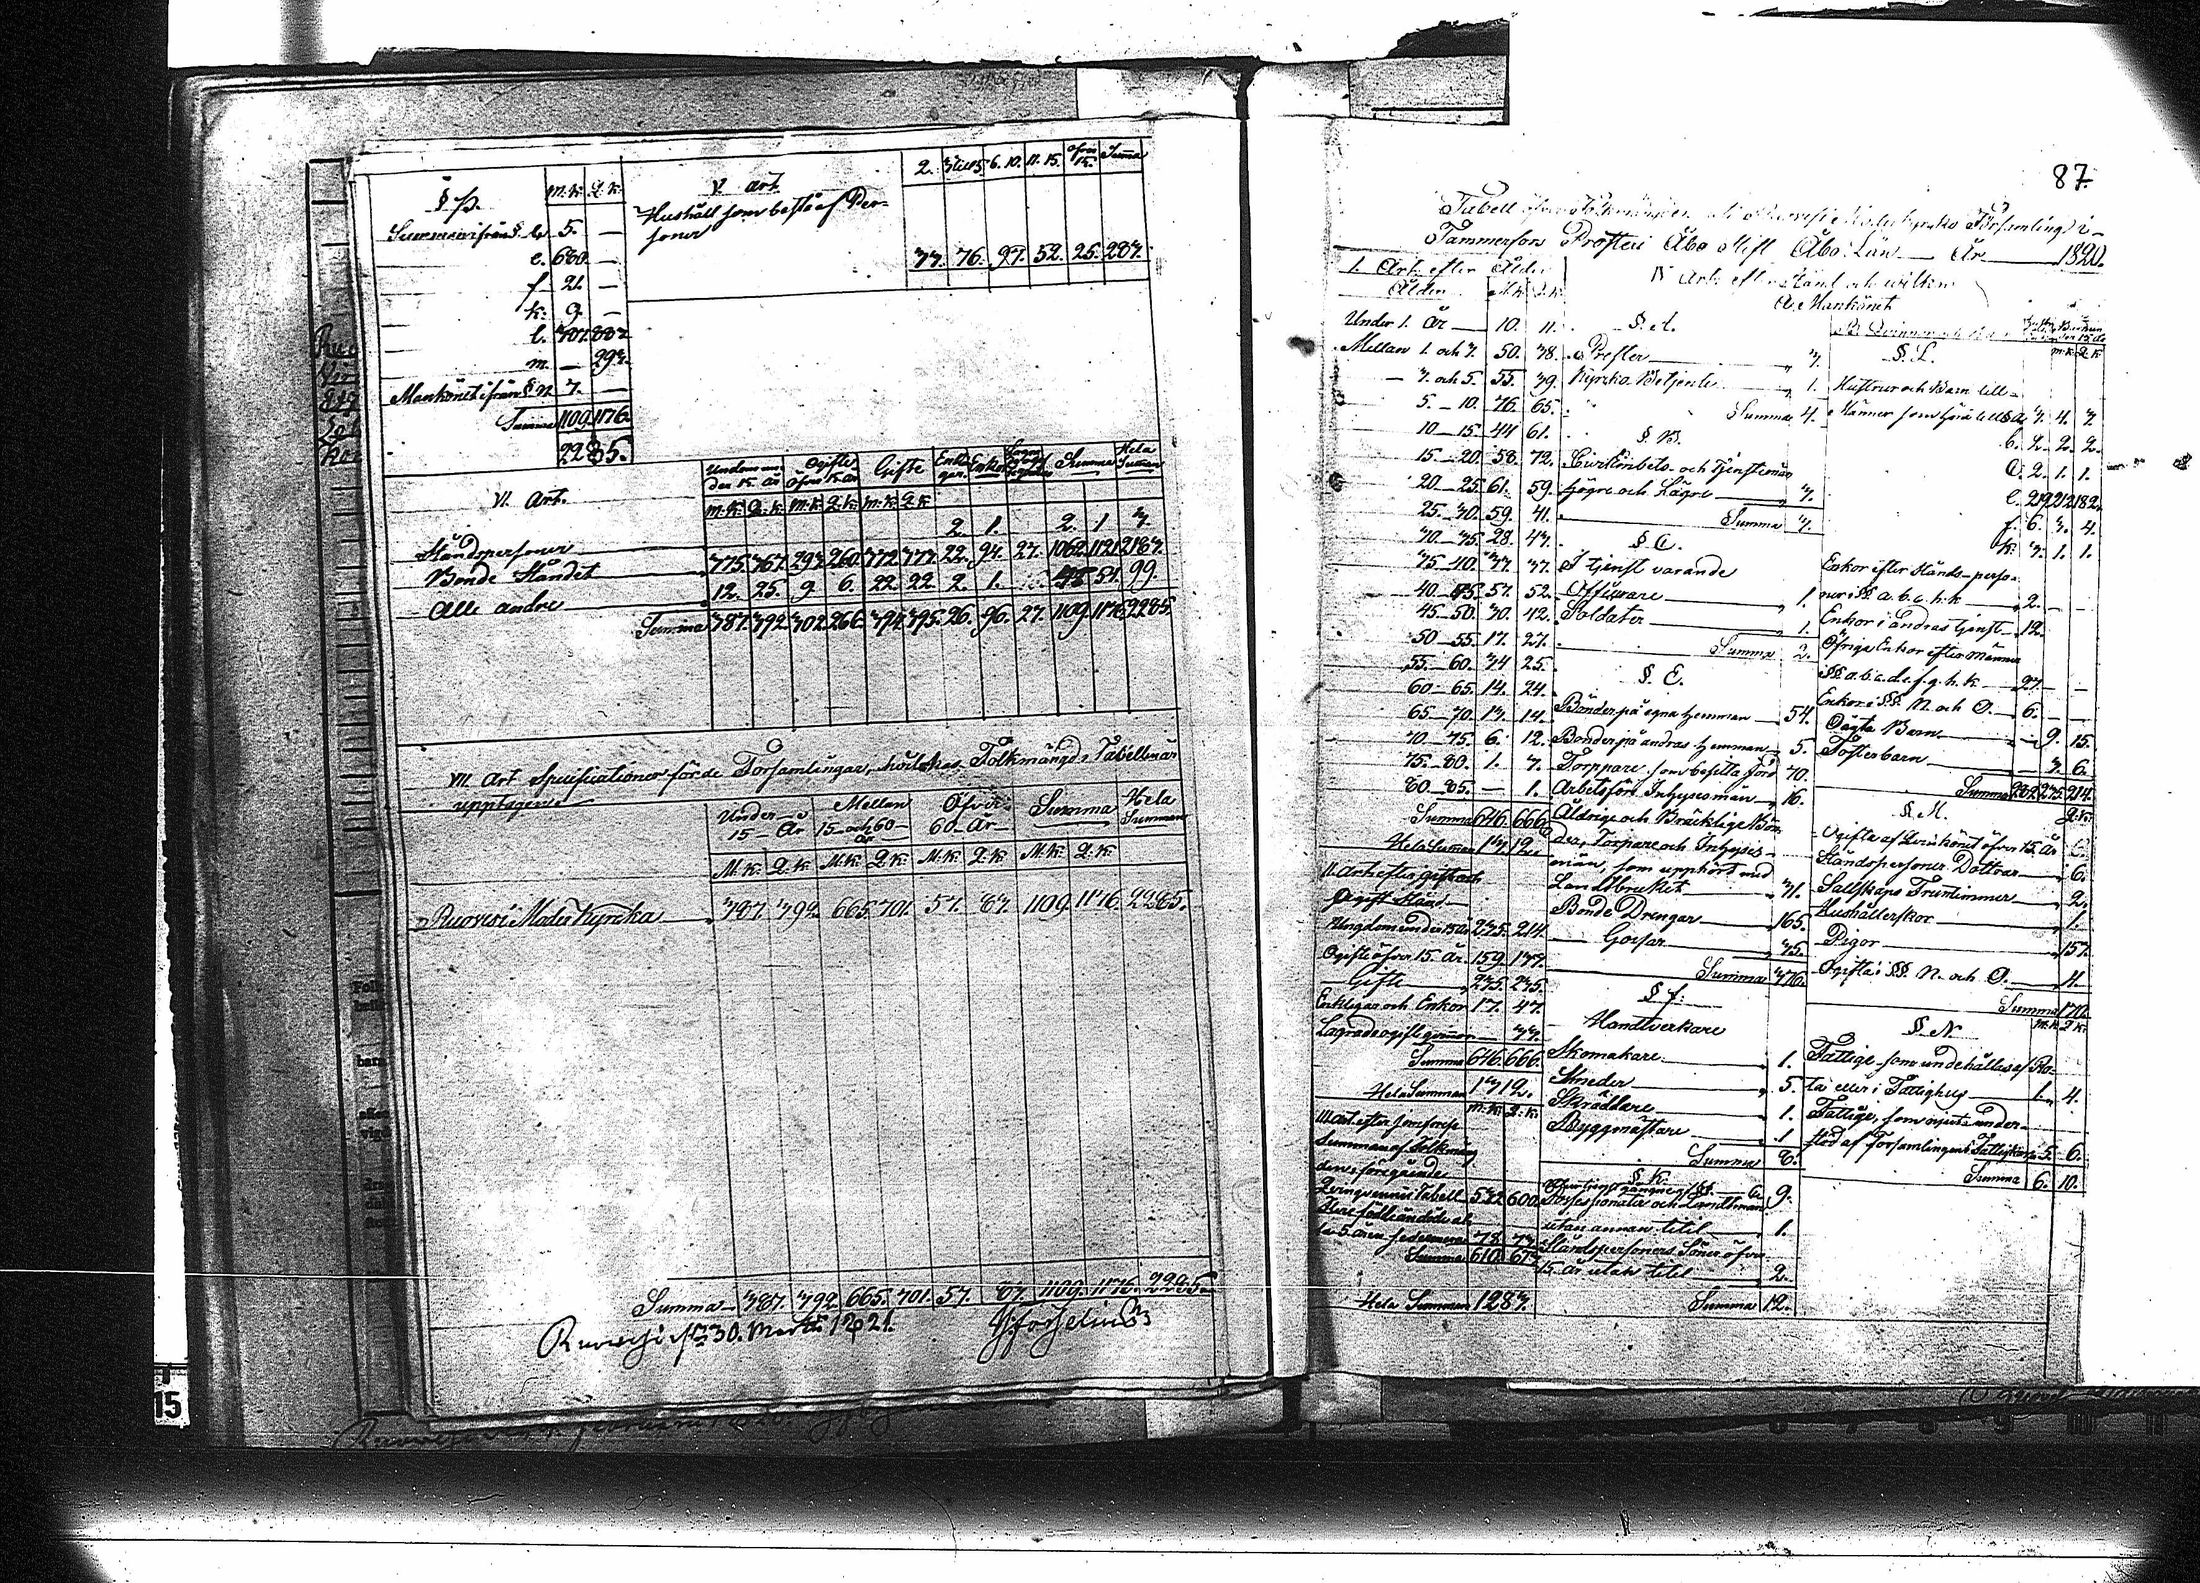 § p. m.k. q.k.
Summan ifrån § b. 5. —
e. 680. —
f. 21. —
k. 9. —
l. 387. 882
m. — 293.
Mankönet ifrån § N 7. —
Summa 1109. 1176.
2285.
V. art.
Hushåll som bestå af Per-
soner
2. 3 till 5 6. 10. 11. 15. öfver 15. Summa
37. 76. 97. 52. 25. 287.
VI. Art.
Ogifte Gifte Enkor Summa Hela Summan
m.k. q.k. m.k. q.k. m.k. q.k.
Ståndspersoner 2. 1. 2. 1 3.
Bonde Ståndet 775. 767. 293. 260. 372. 373. 22. 94. 27. 1062. 1121. 2183.
Alla andra 12. 25. 9. 6. 22. 22. 2. 1. 54. 99.
Summa 787. 792. 302. 266. 394. 395. 26. 96. 27. 1109. 1176. 2285.
VII. Art Specificationer för de Församlingar, hvilkas Folkmängd i Tabellen är
upptagen.
Under 15 År Mellan 15 och 60 År Öfver 60 År Summa Hela Summan
M.k. Q.k. M.k. Q.k. M.k. Q.k. M.k. Q.k.
Ruovesi Moderkyrcka 787. 792. 665. 701. 57. 83. 1109. 1176. 2285.
Summa 787. 792. 665. 701. 57. 83. 1109. 1176. 2285.
Ruovesi 30. Martii 1821.
15
87.
Tabell öfver Folkmängden uti Ruovesi Moderkyrko Församling i
Tammerfors Prosteri Åbo Stift Åbo Län År 1820.
I. Art. efter Ålder
Ålder M.k. Q.k.
Under 1. År 10. 11.
Mellan 1. och 3. 50. 38.
3. och 5. 55. 39.
5. — 10. 76. 65.
10 — 15. 44 61.
15. — 20. 58. 72.
20 — 25. 61. 59.
25. — 30. 59. 41.
30 — 35. 28. 43.
35 — 40. 33. 37.
40 — 45. 57. 52.
45 — 50. 30. 42.
50 — 55. 17. 27.
55. — 60. 34 25.
60 — 65. 14. 24.
65 — 70. 13. 14.
70 — 75. 6. 12.
75. — 80. 1. 3.
80 — 85. — 1.
Summa 646. 666.
Hela Summan 1312.
II. Art efter gift och
Ogift Stånd
Ungdom under 15 År 235. 214.
Ogifte öfver 15. År 159. 133.
Gifte 235. 235.
Enklingar och Enkor 17. 47.
Lägrade ogifte qvinnor 37.
Summa 646. 666.
Hela Summan 1312.
m.k. q.k.
III. Art. efter
Summan af Folkmäng-
den i föregående
Qvinquennii Tabell 532. 600.
Summa 610. 673.
Hela Summan 1283.
IV Art. efter Stånd och vilkor
A. Mankönet
§. A.
Prester 3.
Kyrko Betjente 1.
Summa 4.
§. B.
Civil Ämbets- och Tjenstemän
högre och Lägre 3.
Summa 3.
§. C.
I tjenst varande
Officerare 1.
Soldater 1.
Summa 2.
§. E.
Bönder på egna Hemman 54.
Bönder på andras Hemman 5.
Torppare som besitta jord 70.
Arbetsföre Inhysesmän 16.
Åldrige och Bräcklige Bön-
der, Torpare och Inhyses-
män, som upphört med
Landtbruket 31.
Bonde Drengar 165.
Gossar 35.
Summa 376.
§ f.
Handtverkare
Skomakare 1.
Smeder 5.
Skräddare 1.
Byggmästare 1
Summa 8.
§. K.
utan annan titel 1.
Ståndspersoners Söner öfver
15. år utan titel 2.
Summa 12.
§. L.
Hustrur och Barn till
Männer som höra till § A. 3. 4. 3.
b. 2. 2. 2.
C. 2. 1. 1.
e. 219. 212. 182.
f. 6. 3. 4.
k. 3. 1. 1.
Enkor efter Stånds-perso-
ner i §§. a. b. c. h. k 2. —
Enkor i andras tjenst 12.
Öfriga Enkor efter Männer
i §§. a. b. c. d. e. f. g. h. k 27. —
Enkor i §§. N. och O. 6. —
Oägta Barn — 9. 15.
Fosterbarn 3. 6.
Summa 282. 235. 214.
§. M.
Ogifte af Qvinkönet öfver 15. År
Ståndspersoners Döttrar 6.
Sällskaps Fruntimmer 2.
Hushållerskor 1.
Pigor 157.
Ogifta i §§. N. och O. 4.
Summa 170.
§. N.
Fattige som underhållas af Ro-
ta eller i Fattighus 1. 4.
Fattige, som njuta under-
stöd af Församlingens Fattigkassa 5. 6.
Summa 6. 10.